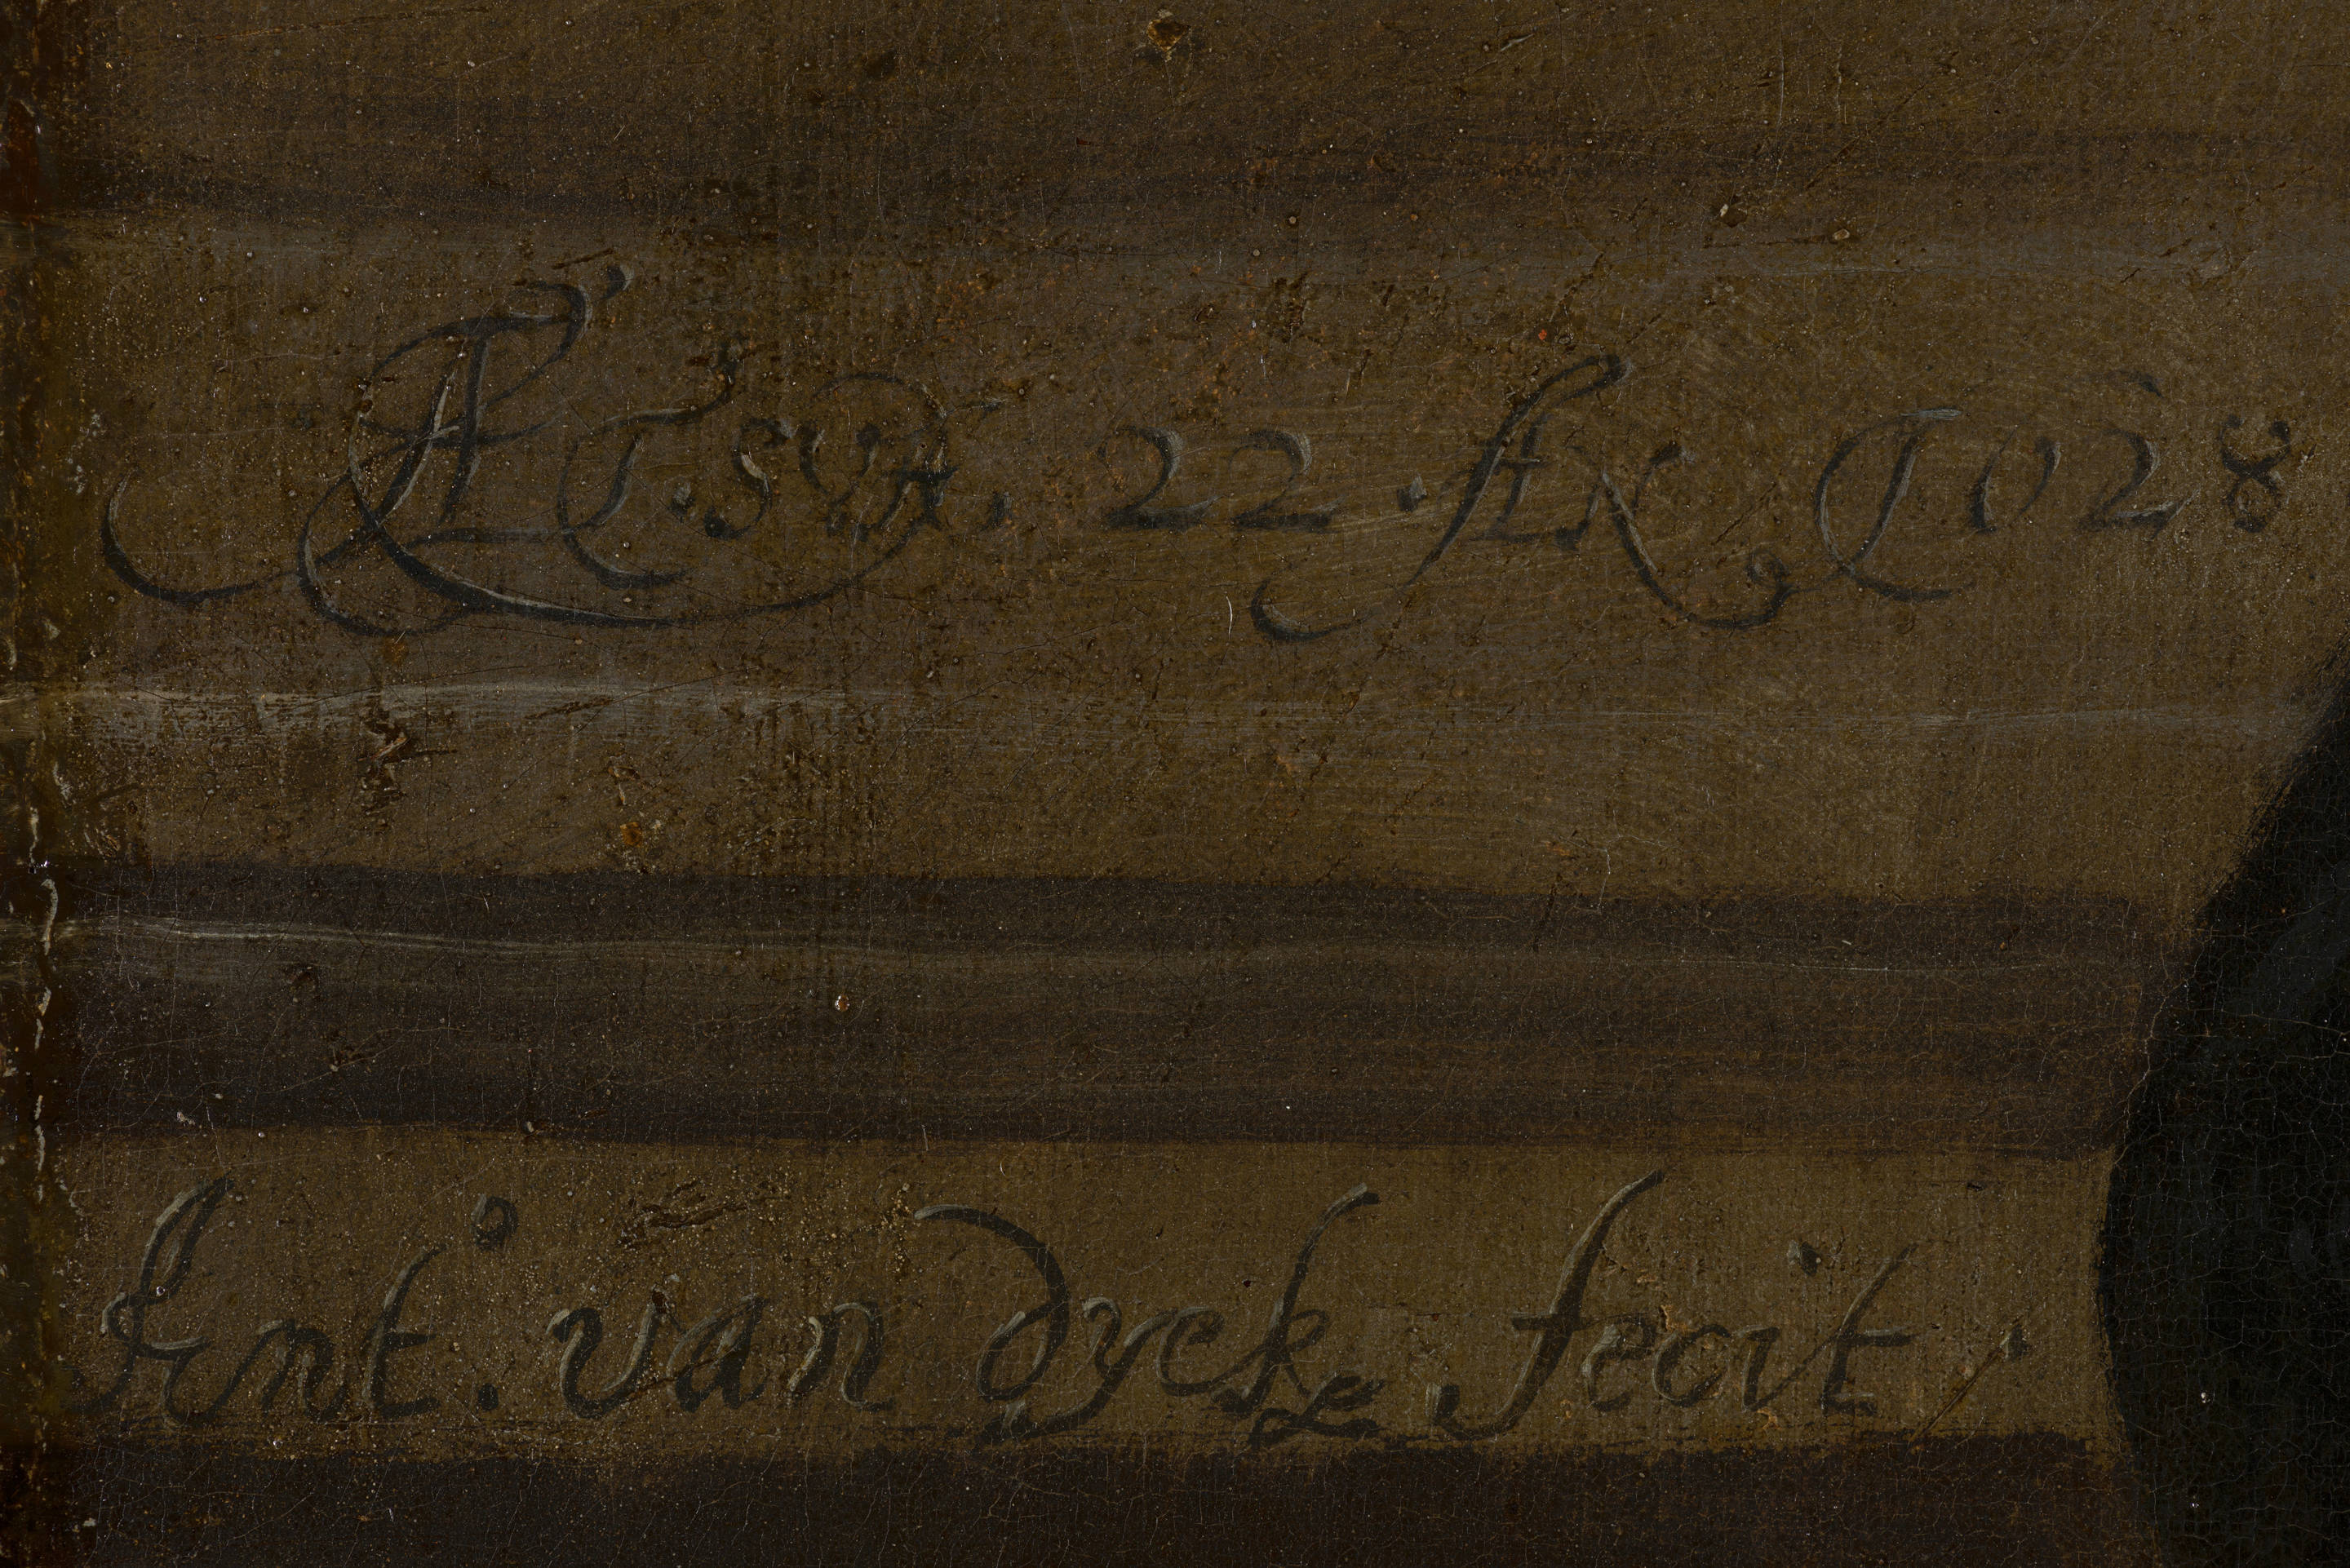 ÆT. SVÆ. 22. AN 1628
Ant.° van dyck. fecit.